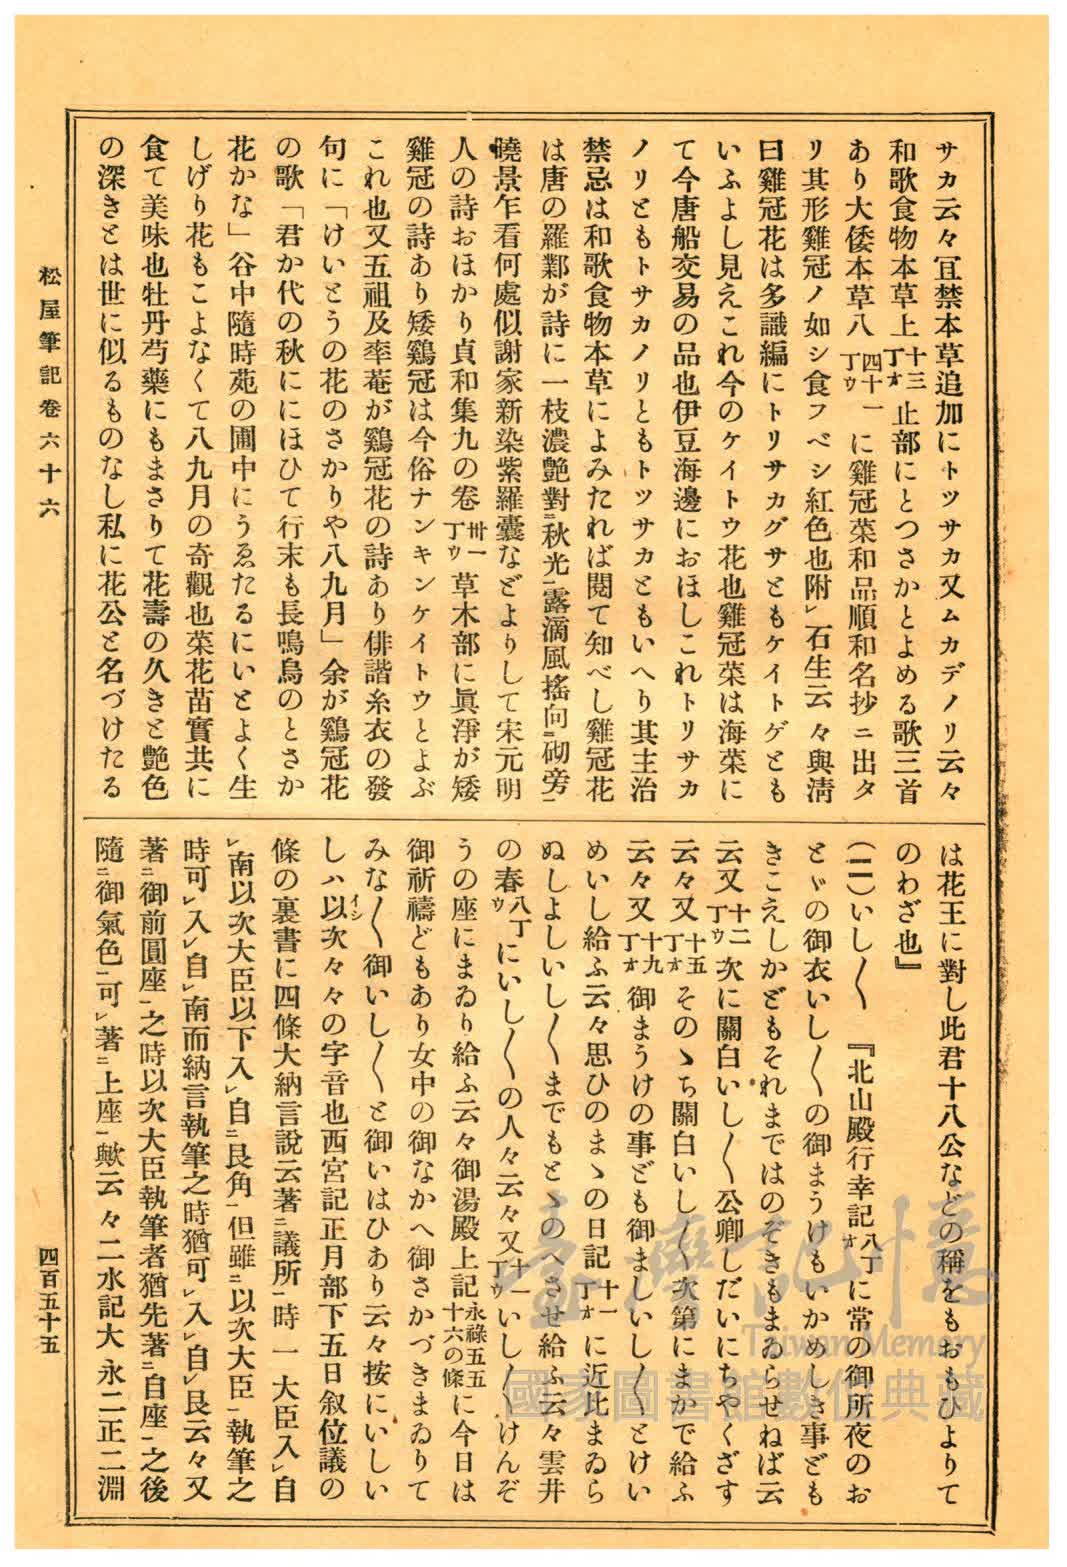 サカ云々宜禁本草追加にトツサカ又ムカデノリ云々
和歌食物本草上十三丁オ止部にとつさかとよめる歌三首
あり大倭本草八四十一丁ウに雞冠菜和品順和名抄ニ出タ
リ其形雞冠ノ如シ食フベシ紅色也附レ石生云々與淸
曰雞冠花は多識編にトリサカグサともケイトゲとも
いふよし見えこれ今のケイトウ花也雞冠菜は海菜に
て今唐船交易の品也伊豆海邊におほしこれトリサカ
ノリともトサカノリともトツサカともいへり其主治
禁忌は和歌食物本草によみたれば閲て知べし雞冠花
は唐の羅鄴が詩に一枝濃艶對二秋光一露滴風搖向二砌旁一
曉景乍看何處似謝家新染紫羅囊などよりして宋元明
人の詩おほかり貞和集九の卷卅一丁ウ草木部に眞淨が矮
雞冠の詩あり矮鷄冠は今俗ナンキンケイトウとよぶ
これ也又五祖及率菴が鷄冠花の詩あり俳諧糸衣の發
句に「けいとうの花のさかりや八九月」余が鷄冠花
の歌「君か代の秋ににほひて行末も長鳴鳥のとさか
花かな」谷中隨時苑の圃中にうゑたるにいとよく生
しげり花もこよなくて八九月の奇觀也菜花苗實共に
食て美味也牡丹芍藥にもまさりて花壽の久きと艶色
の深きとは世に似るものなし私に花公と名づけたる
は花王に對し此君十八公などの稱をもおもひよりて
のわざ也』
(二)いし〱　『北山殿行幸記八丁オに常の御所夜のお
とゞの御衣いし〱の御まうけもいかめしき事ども
きこえしかどもそれまではのぞきもまゐらせねば云
云又十二丁ウ次に關白いし〱公卿しだいにちやくざす
云々又十五丁オそのゝち關白いし〱次第にまかで給ふ
云々又十九丁オ御まうけの事ども御ましいし〱とけい
めいし給ふ云々思ひのまゝの日記十一丁オに近比まゐら
ぬしよしいし〱までもとゝのへさせ給ふ云々雲井
の春八丁ウにいし〱の人々云々又十一丁ウいし〱けんぞ
うの座にまゐり給ふ云々御湯殿上記永祿五五十六の條に今日は
御祈禱どもあり女中の御なかへ御さかづきまゐりて
みな〱御いし〱と御いはひあり云々按にいしい
しハ以次イシ々々の字音也西宮記正月部下五日叙位議の
條の裏書に四條大納言說云著二議所一時一大臣入レ自
レ南以次大臣以下入レ自二艮角一但雖ニ以次大臣一執筆之
時可レ入レ自レ南而納言執筆之時猶可レ入レ自レ艮云々又
著二御前圓座一之時以次大臣執筆者猶先著二自座一之後
隨二御氣色一可レ著二上座一歟云々二水記大永二正二淵
松屋筆記卷六十六
四百五十五
臺灣記憶
Taiwan Memory
國家圖書館數位典藏